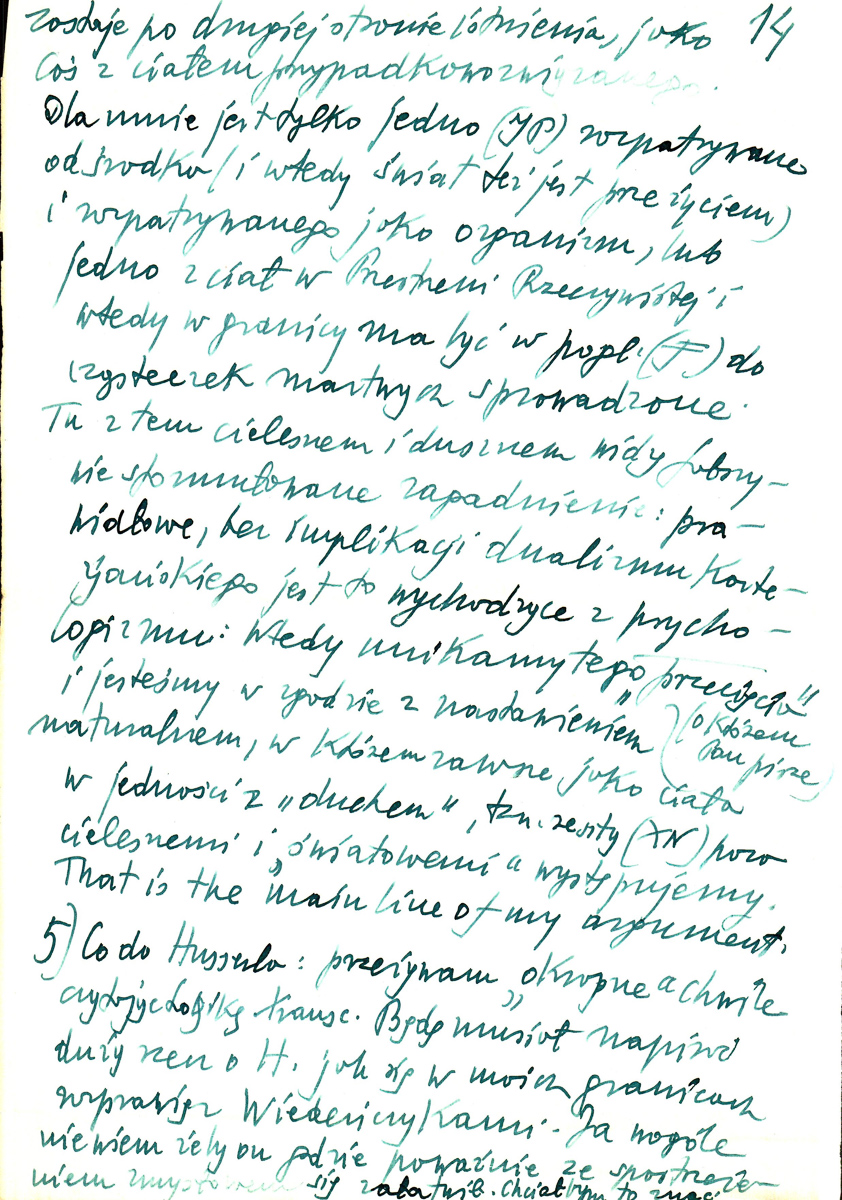 zostaje po drugiej stronie istnienia, joko 14
Coś z ciałem przypadkowo związanego.
Dla mnie jest tylko jedno (IP) rozpatrywane
od środka (i wtedy świat też jest przeżyciem)
i rozpatrywanego joko organizm, lub
jedno z ciał w Przestrzeni Rzeczywistej i
wtedy w granicy ma być w pogl. (F) do
cząsteczek martwych sprowadzone.
Tu z tem cielesnem i dusznem widzę fałszy-
wie sformułowane zagadnienie: pra-
widłowe, bez implikacji dualizmu Karte-
zjańskiego jest to wychodzące z psycho-
logizmu: wtedy unikamy tego „przecięcia"
i jesteśmy w zgodzie z nastawieniem (o którem
naturalnem, w którem zawsze joko ciała Pan pisze)
w jedności z „duchem", tzn. zeszły (XN) poza
cielesnemi i „światowemi" występujemy.
That is the main line of my argument.
5) Co do Husserla: przeżywam „okropne" chwile
czytając Logikę transc. Będę musiał napisać
duży rzen o H. jak się w moich granicach
rozprawię z Wiedeńczykami. Ja wogóle
nie wiem żeby on gdzie poważnie ze spostrzeże-
niem zmysłowem się załatwił. Chciałbym to znać